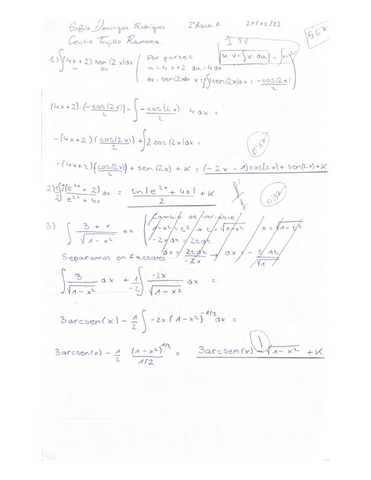 Sofía Domínguez Rodríguez 2ºBach A 21/02/22
Cecilia Trujillo 5,67
1) ∫(4x+2) sen(2x)dx | Por partes u·v - ∫v·du
u dv u = 4x+2 du = 4dx
dv = sen(2x)dx v = ∫sen(2x)dx = -cos(2x)/2
(4x+2)·(-cos(2x)/2) - ∫ -cos(2x)/2 · 4dx =
-(4x+2)(cos(2x)/2) + ∫2cos(2x)dx =
-(4x+2)(cos(2x)/2) + sen(2x) + K = (-2x-1)cos(2x) + sen(2x) + K
2) 1/2 ∫ 2(e^2x + 2)/(e^2x + 4x) dx = ln|e^2x + 4x|/2 + K
3) ∫ (3+x)/√(1-x²) dx | Cambio de variable
1-x² = t² → t = √(1-x²) x = √(1-t²)
-2x dx = 2t dt
dx = 2t dt/-2x → dx = -t dt/√(1
Separamos en factores
∫ 3/√(1-x²) dx + 1/-2 ∫ -2x/√(1-x²) dx =
3arcsen(x) - 1/2 ∫ -2x(1-x²)^-1/2 dx =
3arcsen(x) - 1/2 (1-x²)^1/2/1/2 = 3arcsen(x) - √(1-x²) + K